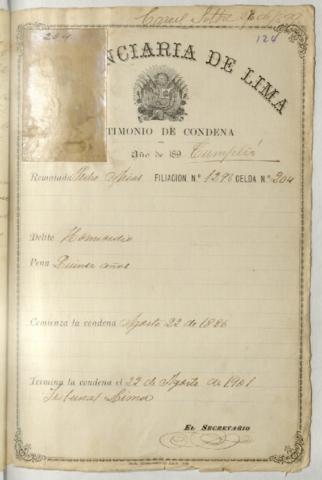 204
124
NCIARIA DE LIMA
TIMONIO DE CONDENA
Año de 189 Cumplió
Rematado Pedro FILIACION N.º 1296 CELDA N.º 204
Delito Homicidio
Pena Quince años
Comienza la condena Agosto 22 de 1886
Termina la condena el 22 de Agosto de 1901
Tribunal Lima
EL SECRETARIO